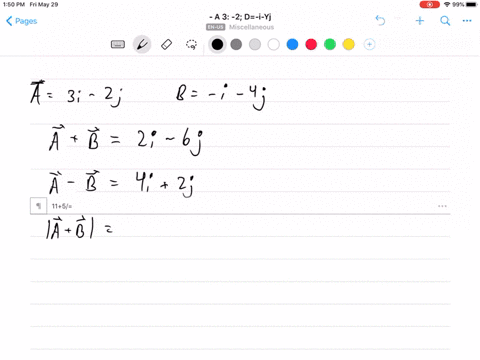 1:50 PM Fri May 29
99%
Pages
- A 3: -2; D=-i-Yj
EN-US Miscellaneous
A⃗ = 3i - 2j B = -i - 4j
A⃗ + B⃗ = 2i - 6j
A⃗ - B⃗ = 4i + 2j
¶ 11+5/= ...
|A⃗ + B⃗| =